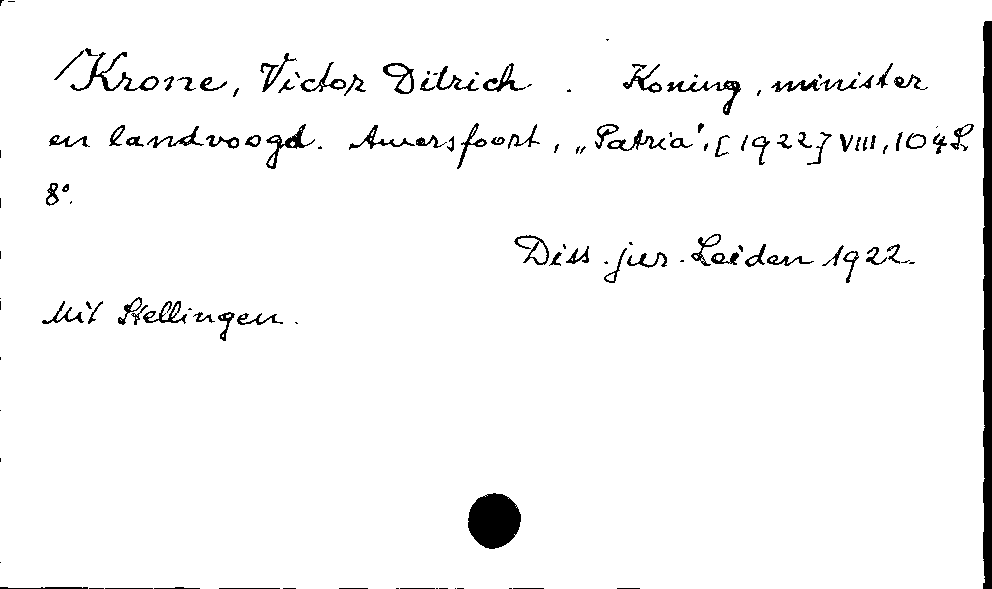 Krone, Victor Ditrich. Koning, minister
en landvoogd. Amersfoort, „Patria", [1922] VIII, 104 S.
8°.
Diss. jur. Leiden 1922.
Mit Stellingen.